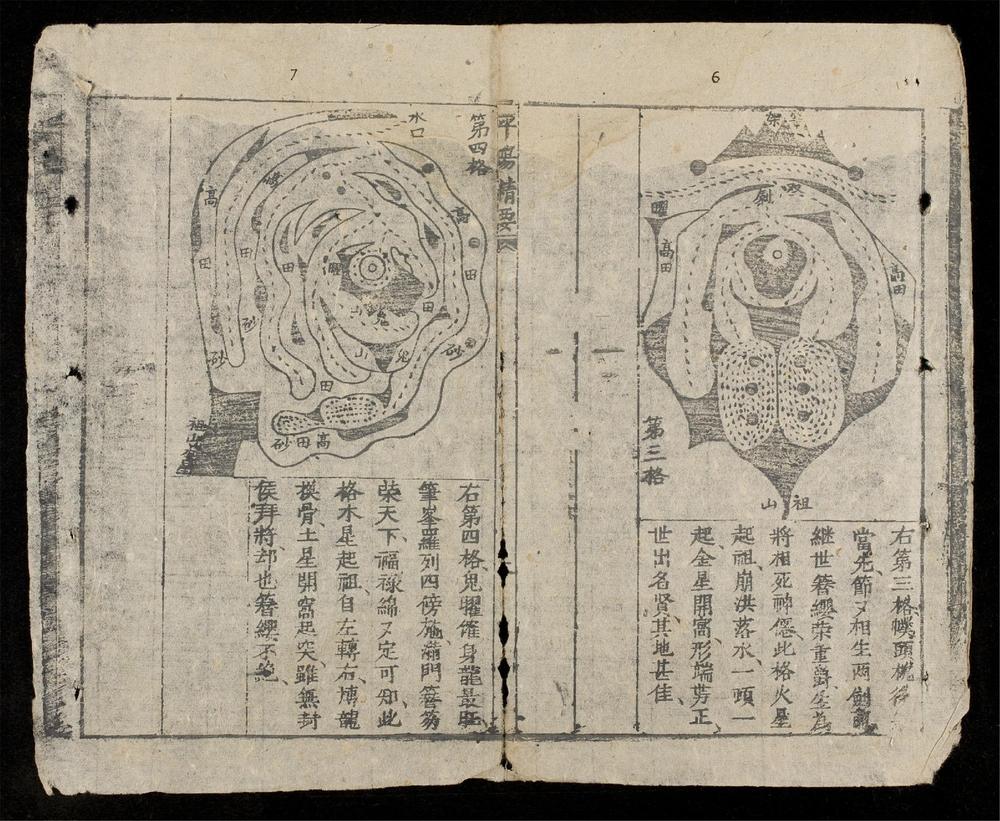 6
架
双
劍
曜
高田
高田
祖山
第三格
右第三格幞頭枕後
當先節又相生兩劍
継世簪纓荣重爵生為
將相死神僊此格火星
起祖崩洪落水一頭一
起金星開窩形端劳正
世出名賢其地甚佳
平陽精要
7
第四格
水口
高
田
砂
高
田
砂
田
砂
田
曜
田
鬼
山
鬼
田
高田砂
祖山
右第四格鬼曜催身龍最旺
筆峯羅列四傍施滿門簪笏
荣天下福祿綿又定可知此
格木星起祖自左轉右博龍
換骨土星開窩起突雖無封
侯拜將却也簪纓不絶